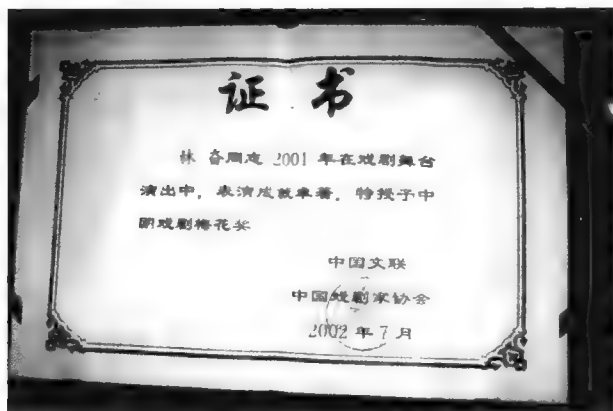 证 书
林 奋同志 2001 年在戏剧舞台
演出中，表演成就卓著，特授予中
国戏剧梅花奖
中国文联
中国戏剧家协会
2002 年 7 月